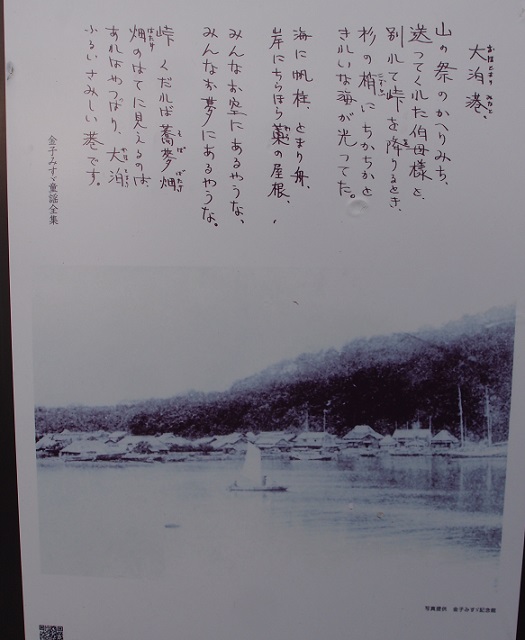 大泊港、
おほとまり みなと
山の祭のかへりみち、
送つてくれた伯母様と
別れて峠を降りるとき、
杉の梢にちかちかと
きれいな海が光つてた。
海に帆柱、とまり舟、
岸にちらほら藁の屋根、
みんなお空にあるやうな、
みんなお夢にあるやうな。
峠くだれば蕎麦畑
畑のはてに見えるのは、
あれはやつぱり、大泊
ふるいさみしい港です。
金子みすゞ童謡全集
写真提供 金子みすゞ記念館